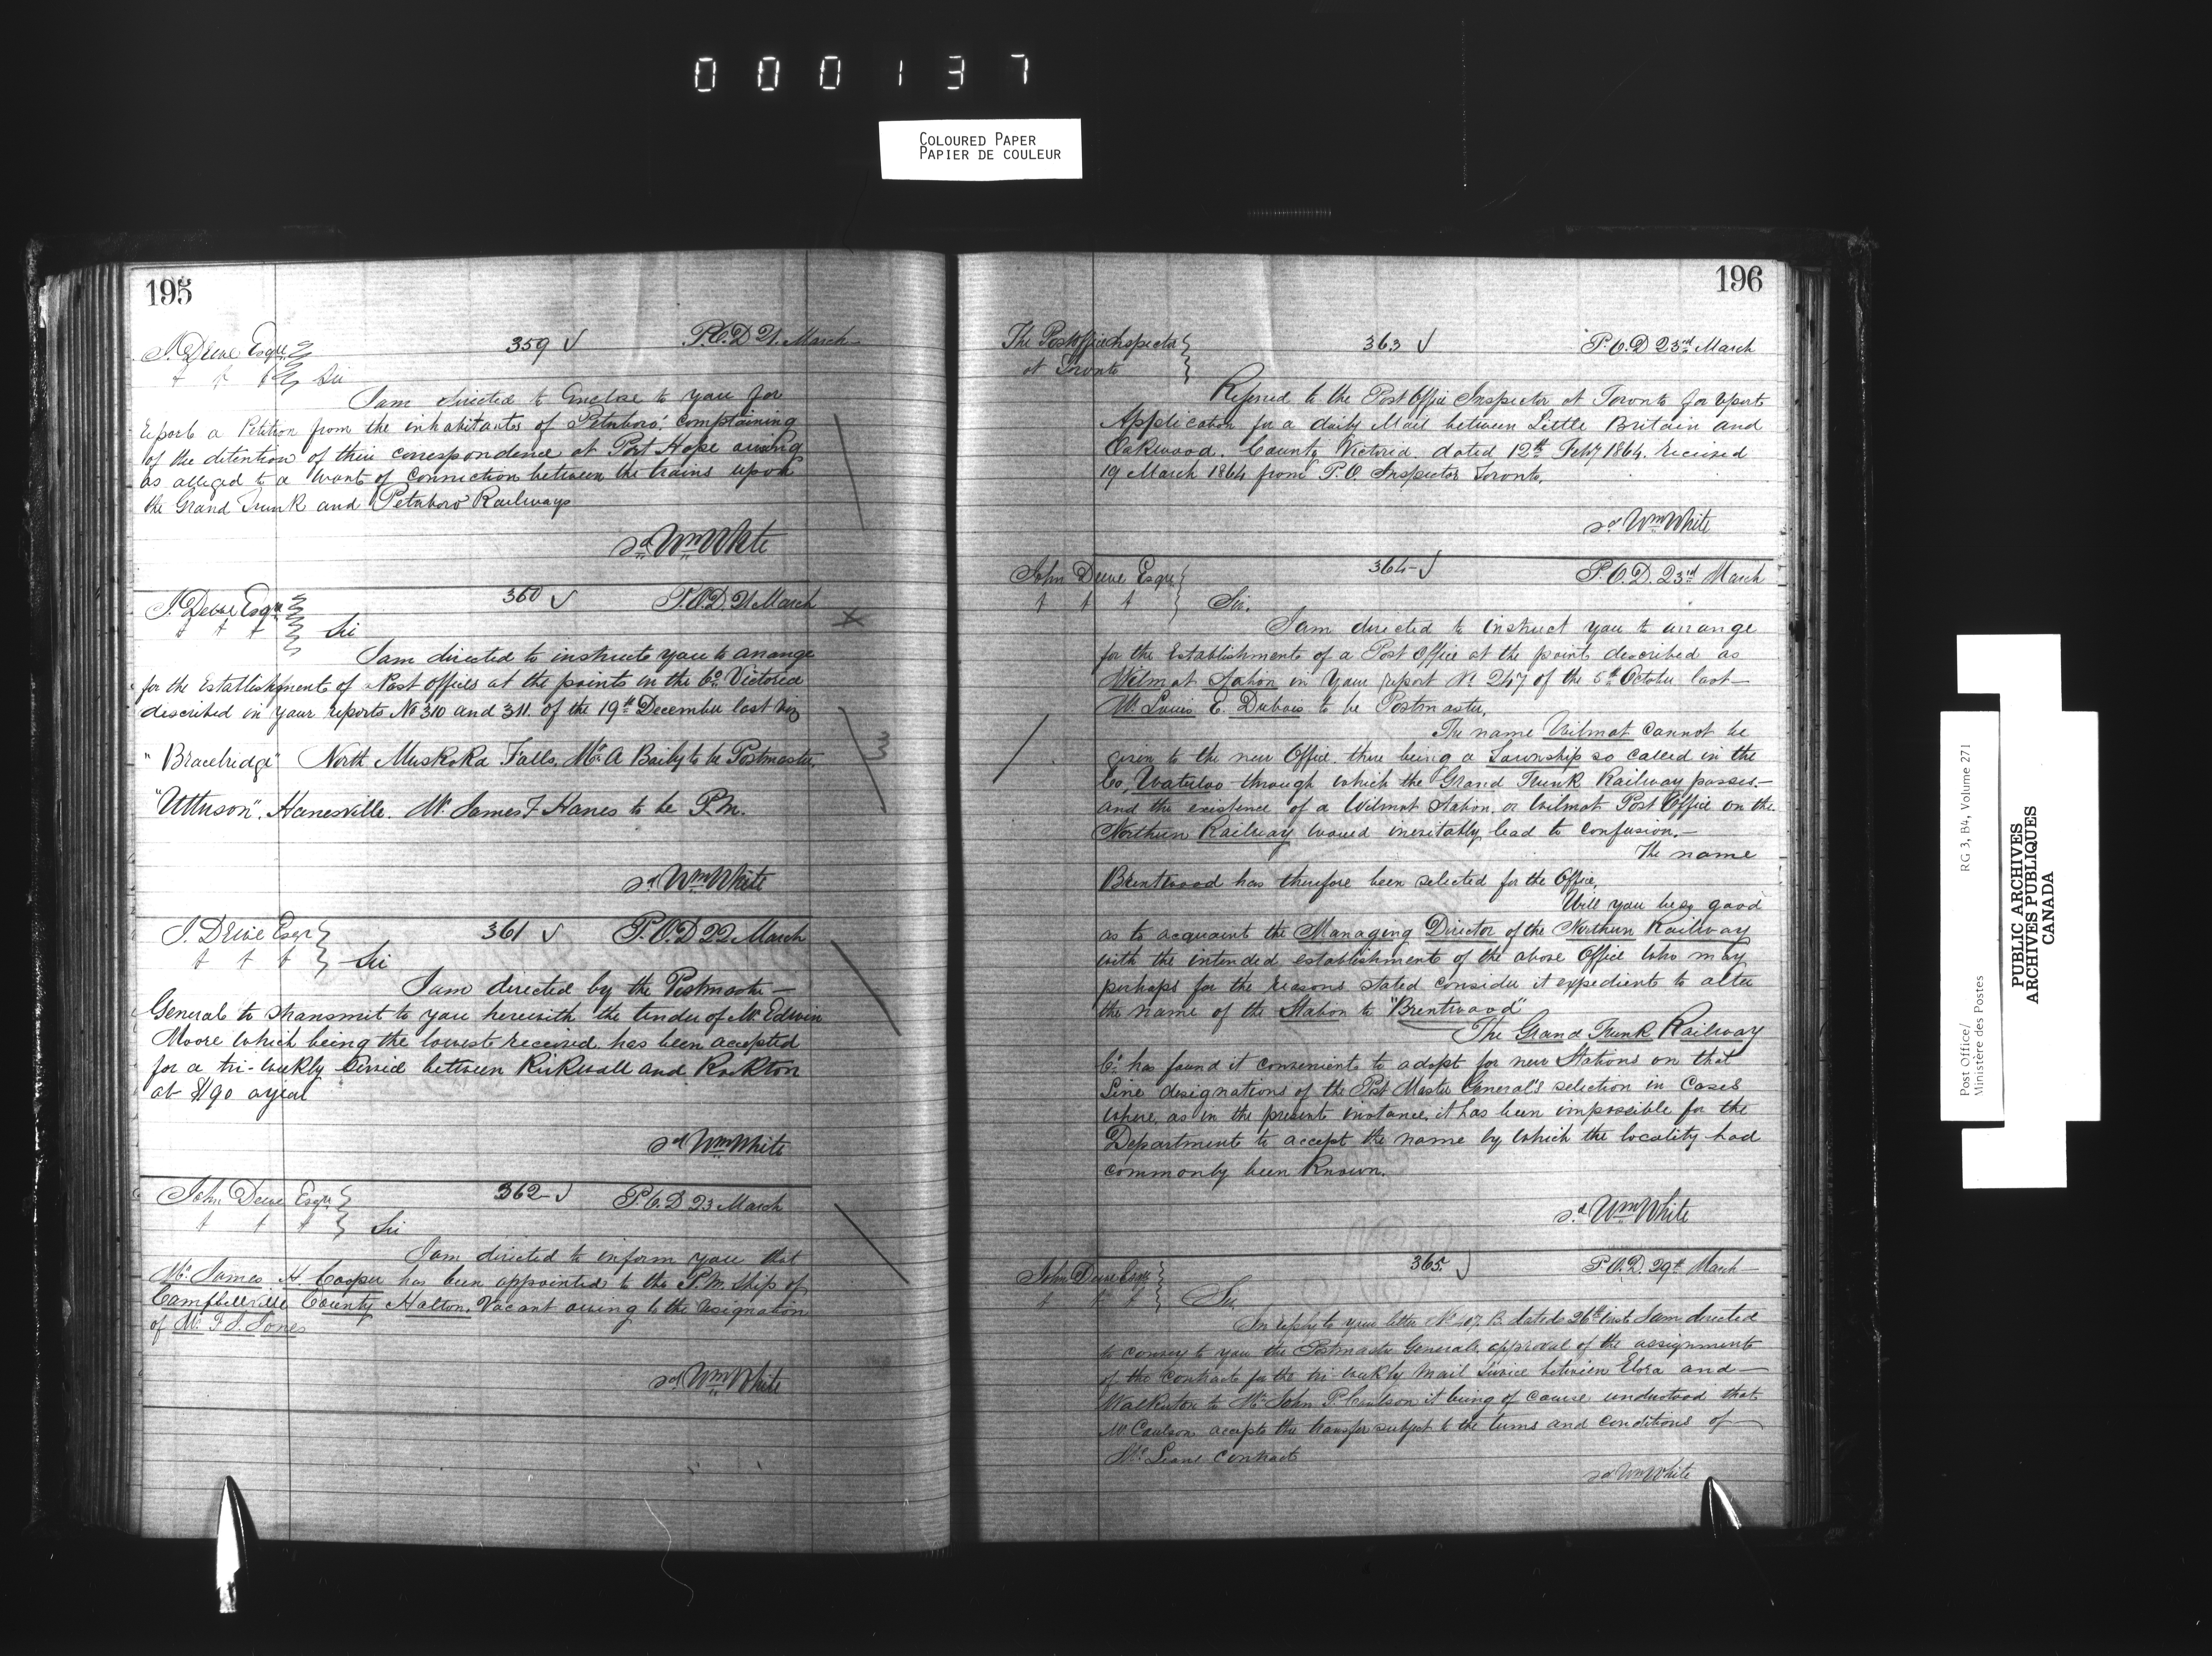 000137
COLOURED PAPER
PAPIER DE COULEUR
195
J. Dewe Esqre 359 P.O.D 21. March
Sir
I am directed to Enclose to you for
report a Petition from the inhabitants of Peterboro', complaining
of the detention of their correspondence at Port Hope arising
as alleged to a want of connection between the trains upon
the Grand Trunk and Peterboro' Railways
sd Wm White
J. Dewe Esqre 360 P.O.D. 21 March
Sir
I am directed to instruct you to arrange
for the Establishment of Post offices at the points in the Co. Victoria
described in your reports No 310 and 311. of the 19th December last viz
"Bracebridge" North Muskoka Falls, Mr. A Baily to be Postmaster,
"Utterson". Hanesville. Mr. James F Hanes to be P.M.
sd Wm White
J. Dewe Esqr 361 P.O.D 22 March
Sir
I am directed by the Postmaster-
General to transmit to you herewith the tender of Mr Edwin
Moore which being the lowest received has been accepted
for a tri-weekly service between Kirkwall and Rockton
at $190 a year
sd Wm White
John Dewe Esqre 362 P.O.D 23 March
Sir
I am directed to inform you that
Mr. James H. Cooper has been appointed to the P.M. Ship of
Campbellville County Halton, Vacant owing to the resignation
of Mr. F J. Jones
sd Wm White
196
The Post office Inspector 363 P.O.D 23rd March
at Toronto
Referred to the Post Office Inspector at Toronto for report
Application for a daily Mail between Little Britain and
Oakwood. County Victoria. dated 12th Feby 1864. received
19 March 1864 from P.O. Inspector Toronto.
sd Wm White
John Dewe Esqre 364 P.O.D. 23rd March
Sir.
I am directed to instruct you to arrange
for the Establishment of a Post Office at the point described as
Wilmot Station in your report No. 247 of the 5th October last—
Mr. Louis E. Dubois to be Postmaster.
The name Wilmot cannot be
given to the new Office. there being a Township so called in the
Co, Waterloo through which the Grand Trunk Railway passes.—
and the existence of a Wilmot Station, or Wilmot Post Office on the
Northern Railway would inevitably lead to confusion.—
The name
Brentwood has therefore been selected for the Office.
Will you be so good
as to acquaint the Managing Director of the Northern Railway
with the intended establishment of the above Office who may
perhaps for the reasons stated consider it expedient to alter
the name of the Station to "Brentwood"
The Grand Trunk Railway
Co. has found it convenient to adopt for new Stations on that
Line designations of the Post Master General's selection in Cases
where, as in the present instance, it has been impossible for the
Department to accept the name by which the locality had
commonly been known.
sd Wm White
John Dewe Esqre 365. P.O.D. 29th March
Sir
In reply to your letter No. 407. B. dated 26th inst I am directed
to convey to you the Postmaster Generals approval of the assignment
of the Contract for the tri-weekly Mail Service between Elora and—
Walkerton to Mr. John P. Coulson it being of course understood that
Mr Coulson accepts the transfer subject to the terms and conditions of—
Contract
sd Wm White
Post Office/ RG 3, B4, Volume 271
Ministère des Postes
PUBLIC ARCHIVES
ARCHIVES PUBLIQUES
CANADA